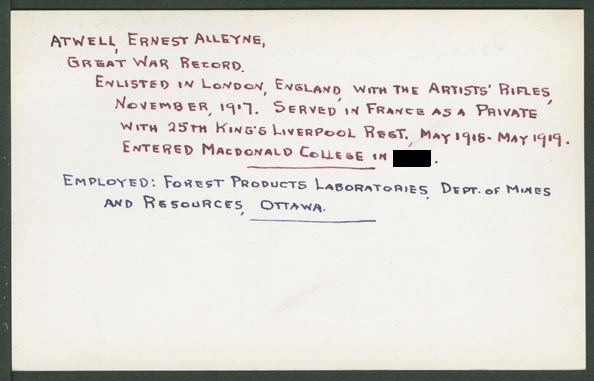 Atwell, Ernest Alleyne,
Great War Record.
Enlisted in London, England, with the Artists' Rifles,
November, 1917. Served in France as a Private
with 25th King's Liverpool Regt., May 1918 - May 1919.
Entered Macdonald College in .
Employed: Forest Products Laboratories, Dept. of Mines
and Resources, Ottawa.